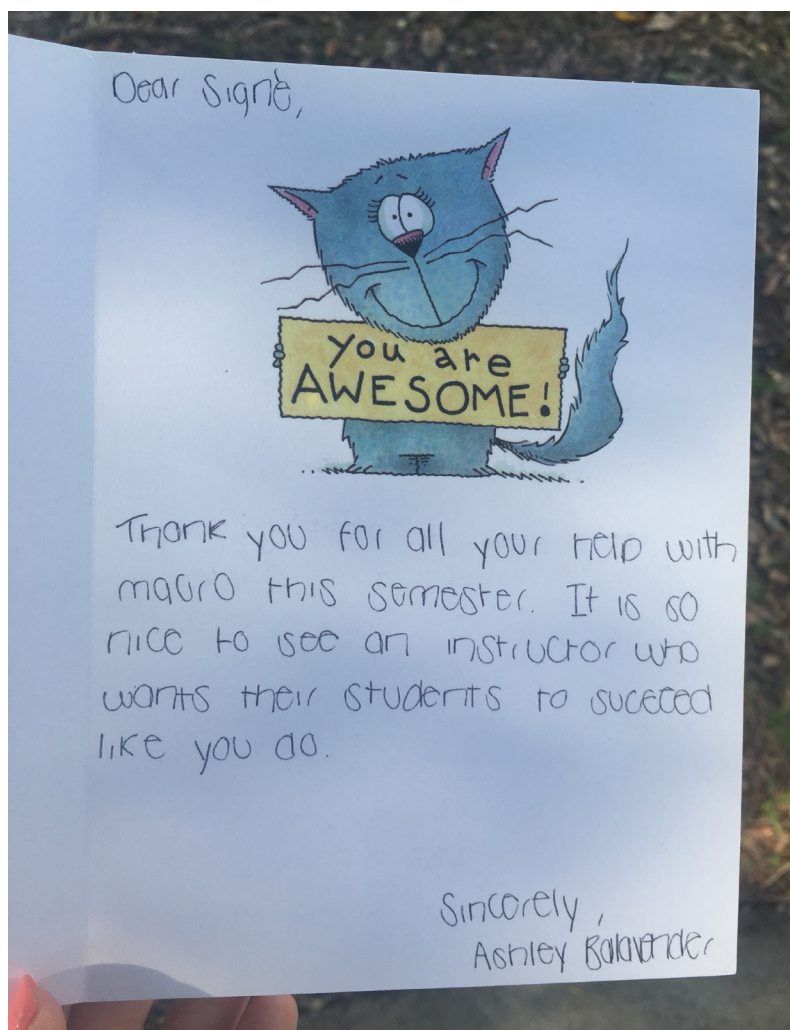 Dear Signè,
you are
AWESOME!
Thank you for all your help with
macro this semester. It is so
nice to see an instructor who
wants their students to succeed
like you do.
Sincerely,
Ashley Balavender